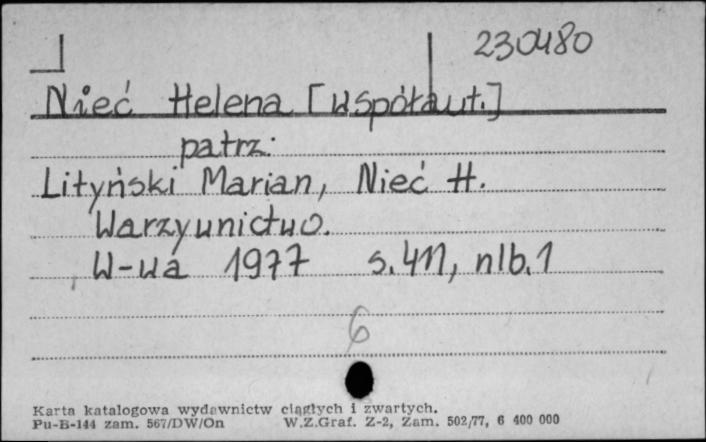 230480
Nieć Helena [współaut.]
patrz:
Lityński Marian, Nieć H.
Warzywnictwo.
W-wa 1977 s. 411, nlb. 1
6
Karta katalogowa wydawnictw ciągłych i zwartych.
Pu-B-144 zam. 567/DW/On W.Z.Graf. Z-2, Zam. 502/77, 6 400 000